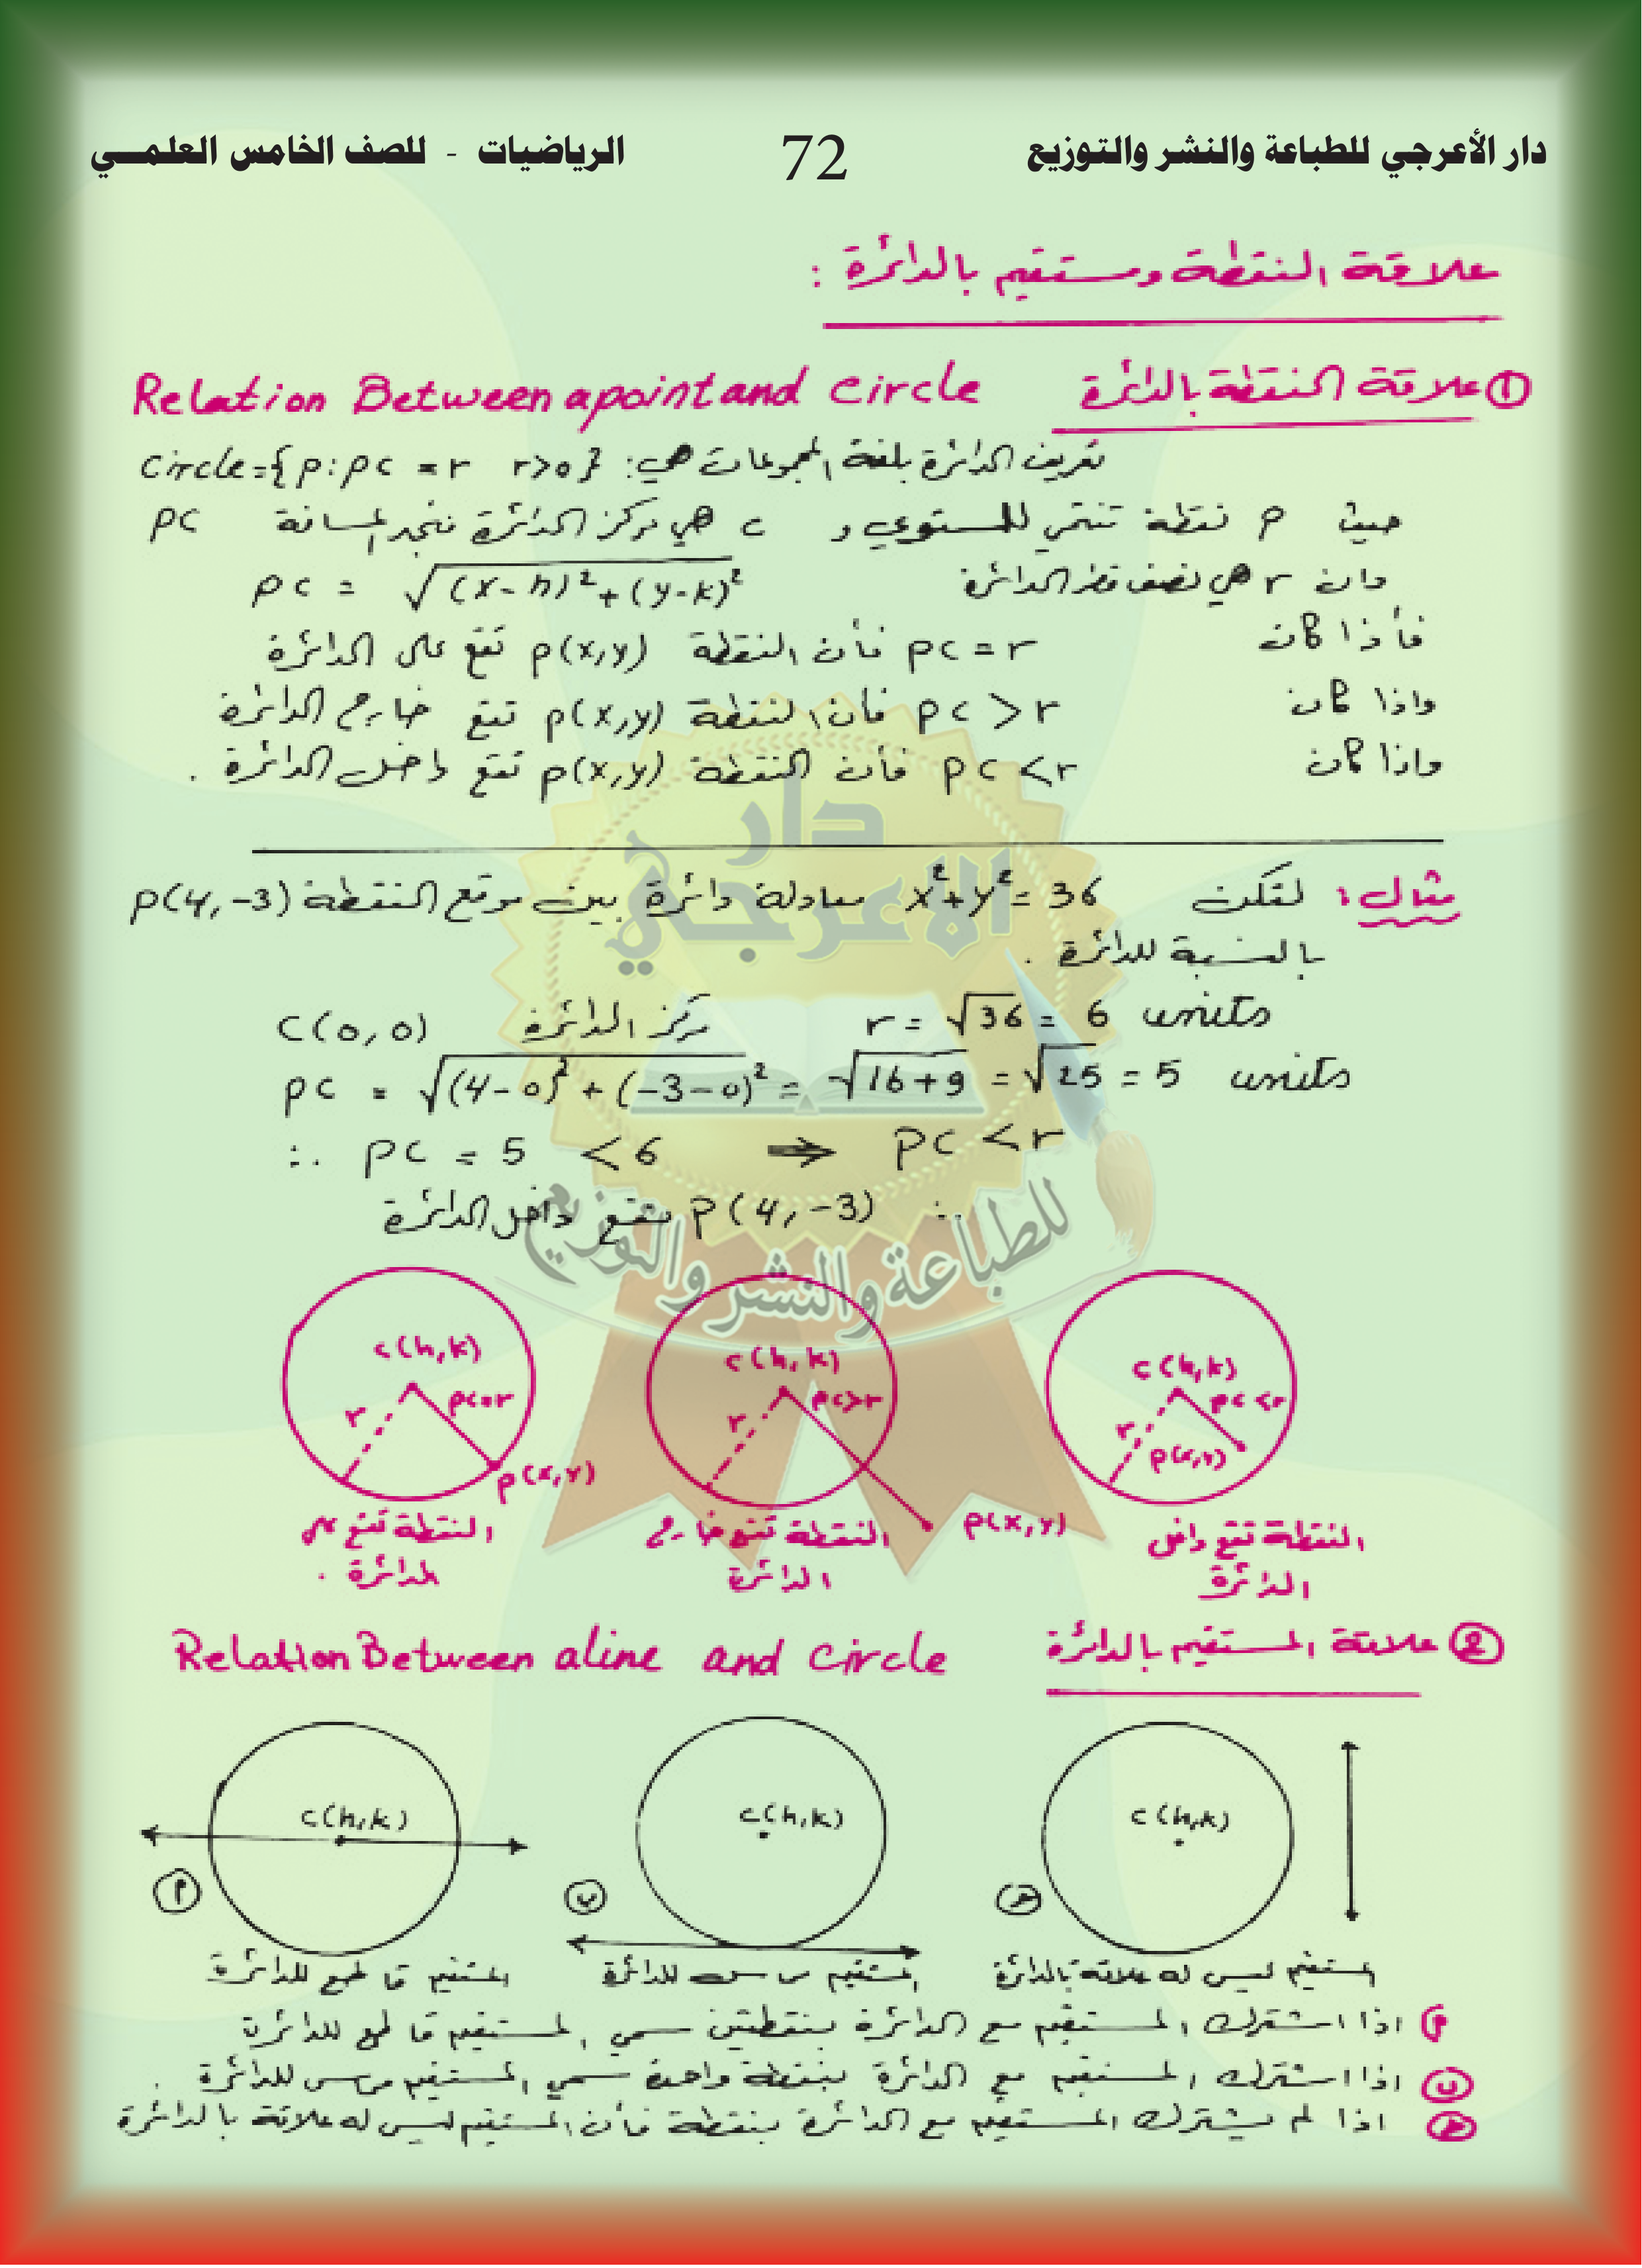 دار الأعرجي للطباعة والنشر والتوزيع 72 الرياضيات - للصف الخامس العلمي
علاقة النقطة ومستقيم بالدائرة :
① علاقة النقطة بالدائرة Relation Between a point and circle
تعريف الدائرة بلغة المجموعات هي: circle={p:pc = r r>0}
حيث p نقطة تنتمي للمستوي و c هي مركز الدائرة فنجد المسافة PC
وان r هي نصف قطر الدائرة pc = √(x-h)²+(y-k)²
فأذا كان pc = r فأن النقطة p(x,y) تقع على الدائرة
واذا كان pc > r فأن النقطة p(x,y) تقع خارج الدائرة
واذا كان pc < r فأن النقطة p(x,y) تقع داخل الدائرة .
مثال: لتكن x²+y²=36 معادلة دائرة بين موقع النقطة p(4,-3)
بالنسبة للدائرة .
C(0,0) مركز الدائرة r = √36 = 6 units
pc = √(4-0)²+(-3-0)² = √16+9 = √25 = 5 units
∴ pc = 5 < 6 ⇒ pc < r
∴ p(4,-3) تقع داخل الدائرة
دار
الاعرجي
للطباعة والنشر والتوزيع
c(h,k) r pc=r p(x,y)
c(h,k) r pc>r p(x,y)
c(h,k) r pc<r p(x,y)
النقطة تقع داخل
الدائرة
النقطة تقع خارج
الدائرة
النقطة تقع على
الدائرة .
② علاقة المستقيم بالدائرة Relation Between a line and circle
c(h,k) c(h,k) c(h,k)
أ ب جـ
المستقيم قاطع للدائرة
المستقيم مماس للدائرة
المستقيم ليس له علاقة بالدائرة
أ اذا اشترك المستقيم مع الدائرة بنقطتين سمي المستقيم قاطع للدائرة
ب اذا اشترك المستقيم مع الدائرة بنقطة واحدة سمي المستقيم مماس للدائرة .
جـ اذا لم يشترك المستقيم مع الدائرة بنقطة فأن المستقيم ليس له علاقة بالدائرة